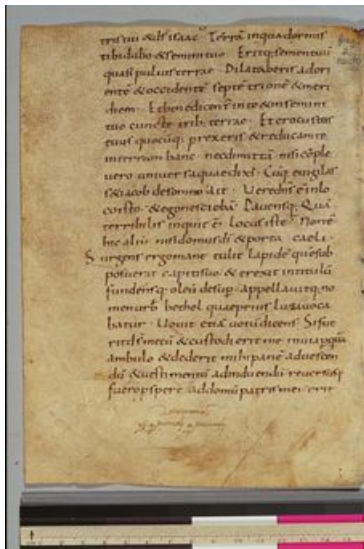 tris tui & ds isaac. Terrā in qua dormis
tibi dabo & semini tuo. Eritq; semen tuū
quasi pulvis terrae. Dilataberis ad ori
entē & occidentē septētrionē & meri
diem. Et benedicent in te & in semini
tuo cunctae trib; terrae. Et ero custos
tuus quocūq; prexeris & reducam te
in terram hanc nec dimittā nisi cōple
vero universa quae dixi. Cūq; evigilas
s& iacob de somno Ait. Vere dns ē in lo
co isto & ego nesciebā. Pavensq; Quā
terribilis inquit ē locus iste. Non ē
hic aliud nisi domus di & porta caeli.
Surgens ergo mane tulit lapidē quē sub
posuerat capiti suo & erexit in titulū
fundensq; oleū desup. appellavitq; no
men urb bethel quae prius luza voca
batur. Vovit etiā votū dicens Si fue
rit ds mecū & custodierit me in via p quā
ambulo & dederit mihi panē ad vescen
dū & vestimentū ad induendū reversusq;
fuero pspere ad domū patris mei erit